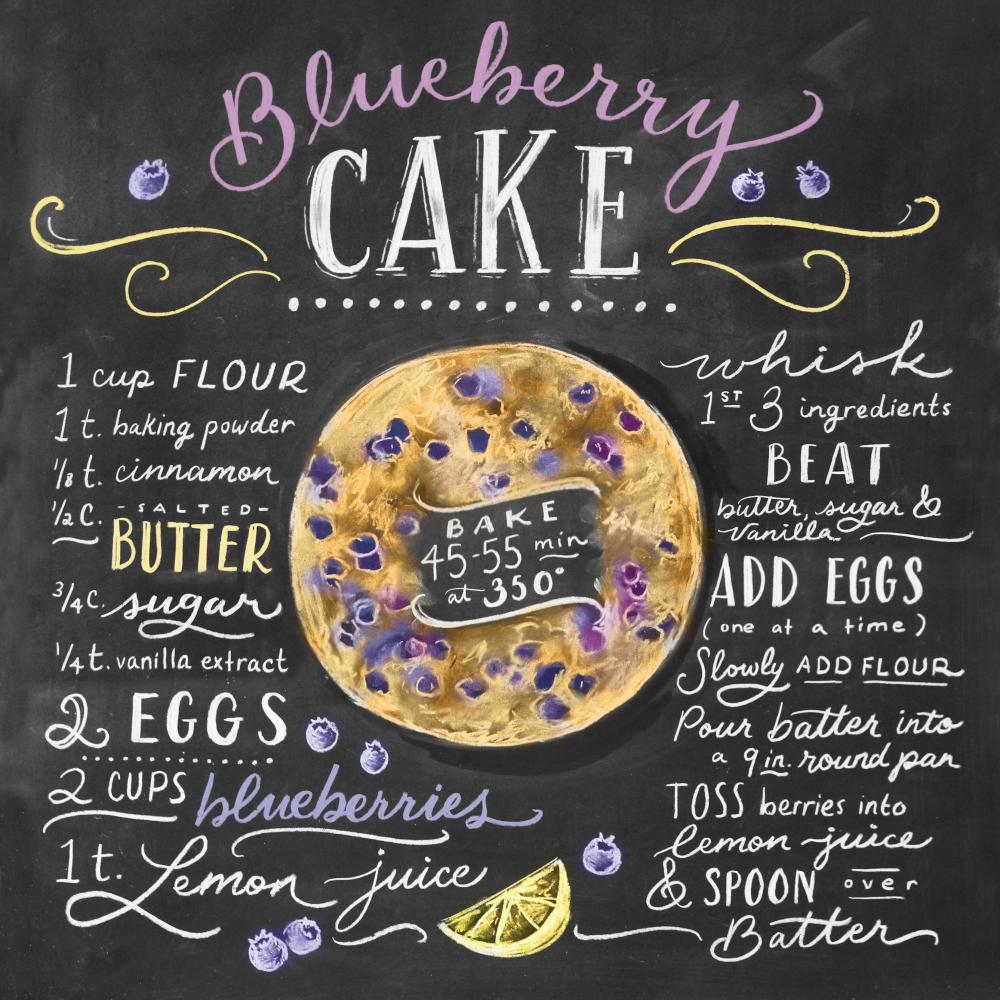 Blueberry
CAKE
1 cup FLOUR
1 t. baking powder
1/8 t. cinnamon
1/2 c. -SALTED-
BUTTER
3/4 c. sugar
1/4 t. vanilla extract
2 EGGS
2 CUPS blueberries
1 t. Lemon juice
BAKE
45-55 min
at 350°
whisk
1ST 3 ingredients
BEAT
butter, sugar &
Vanilla
ADD EGGS
(one at a time)
Slowly ADD FLOUR
Pour batter into
a 9in. round pan
TOSS berries into
lemon juice
& SPOON over
Batter